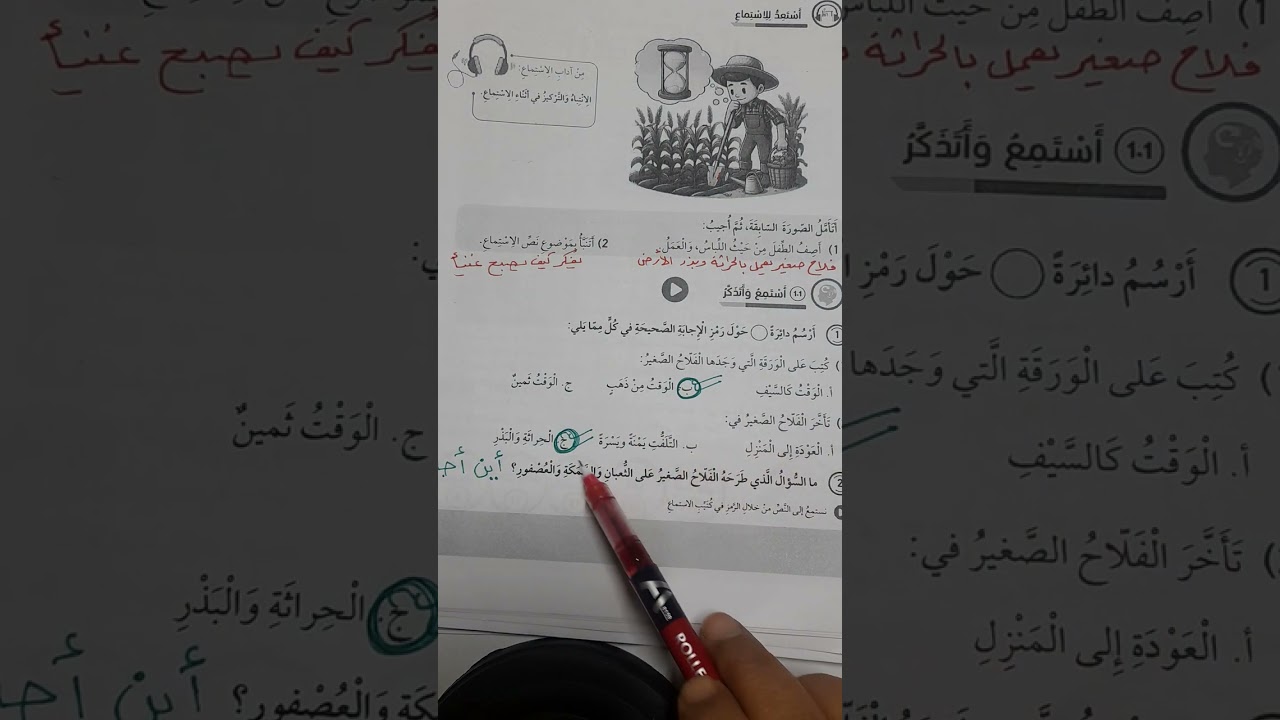 أَسْتَعِدُّ لِلِاسْتِماعِ
مِنْ آدابِ الِاسْتِماعِ:
الِانْتِباهُ وَالتَّرْكيزُ في أَثْناءِ الِاسْتِماعِ.
أَتَأَمَّلُ الصّورَةَ السّابِقَةَ، ثُمَّ أُجيبُ:
1) أَصِفُ الطِّفلَ مِنْ حَيْثُ اللِّباسُ، وَالْعَمَلُ.
2) أَتَنَبَّأُ بِمَوْضوعِ نَصِّ الِاسْتِماعِ.
فلاح صغير يعمل بالحراثة وبذر الأرض
يفكر كيف يصبح غنيأ
1.1 أَسْتَمِعُ وَأَتَذَكَّرُ
1 أَرْسُمُ دائِرَةً حَوْلَ رَمْزِ الْإِجابَةِ الصَّحيحَةِ في كُلٍّ مِمّا يَلي:
) كُتِبَ عَلى الْوَرَقَةِ الَّتي وَجَدَها الْفَلّاحُ الصَّغيرُ:
أ. الْوَقْتُ كَالسَّيْفِ
ب. الْوَقتُ مِنْ ذَهَبٍ
ج. الْوَقْتُ ثَمينٌ
) تَأَخَّرَ الْفَلّاحُ الصَّغيرُ في:
أ. الْعَوْدَةِ إِلى الْمَنْزِلِ
ب. التَّلَفُّتِ يَمْنَةً ويَسْرَةً
ج. الْحِراثَةِ وَالْبَذْرِ
2 ما السُّؤالُ الَّذي طَرَحَهُ الْفَلّاحُ الصَّغيرُ عَلى الثُّعبانِ وَالسَّمَكَةِ وَالْعُصْفورِ؟ أين
نستمِعُ إلى النَّصِّ مِنْ خلالِ الرَّمزِ في كُتَيِّبِ الاستماعِ
ROLLE